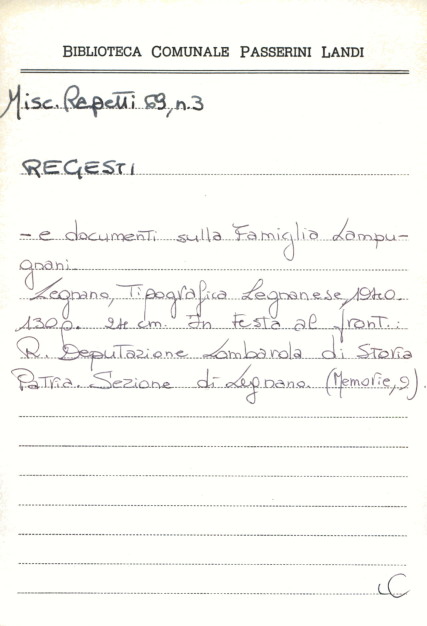 BIBLIOTECA COMUNALE PASSERINI LANDI
Misc. Rapetti 69, n.3
REGESTI
- e documenti sulla Famiglia Lampu-
gnani.
Legnano, Tipografica Legnanese, 1940.
130p. 24 cm. In testa al front.:
R. Deputazione Lombarda di Storia
Patria. Sezione di Legnano. (Memorie, 9).